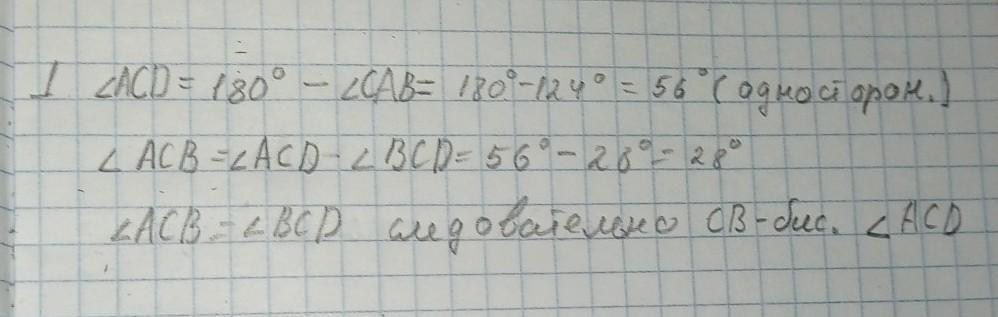 1 ∠ACD = 180° - ∠CAB = 180° - 124° = 56° (односторон.)
∠ACB = ∠ACD - ∠BCD = 56° - 28° = 28°
∠ACB = ∠BCD следовательно CB - бис. ∠ACD